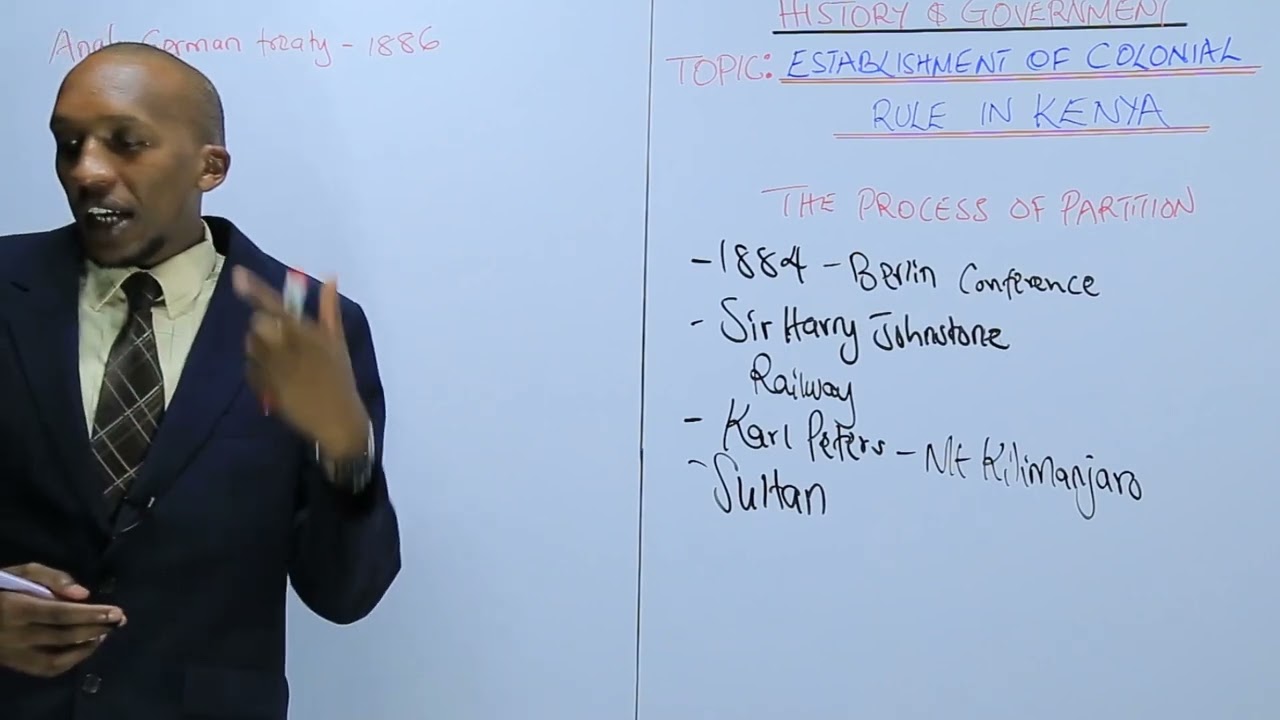 German treaty - 1886
HISTORY & GOVERNMENT
TOPIC: ESTABLISHMENT OF COLONIAL
RULE IN KENYA
THE PROCESS OF PARTITION
- 1884 - Berlin Conference
- Sir Harry Johnstone
Railway
- Karl Peters - Mt Kilimanjaro
- Sultan